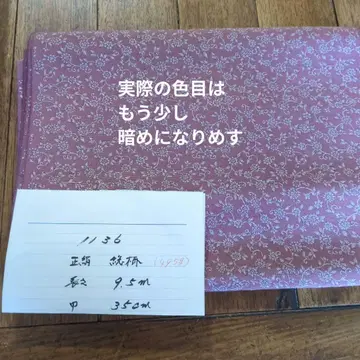 実際の色目は
もう少し
暗めになりめす
1136
正絹 総柄
長さ 9.5m
巾 35cm